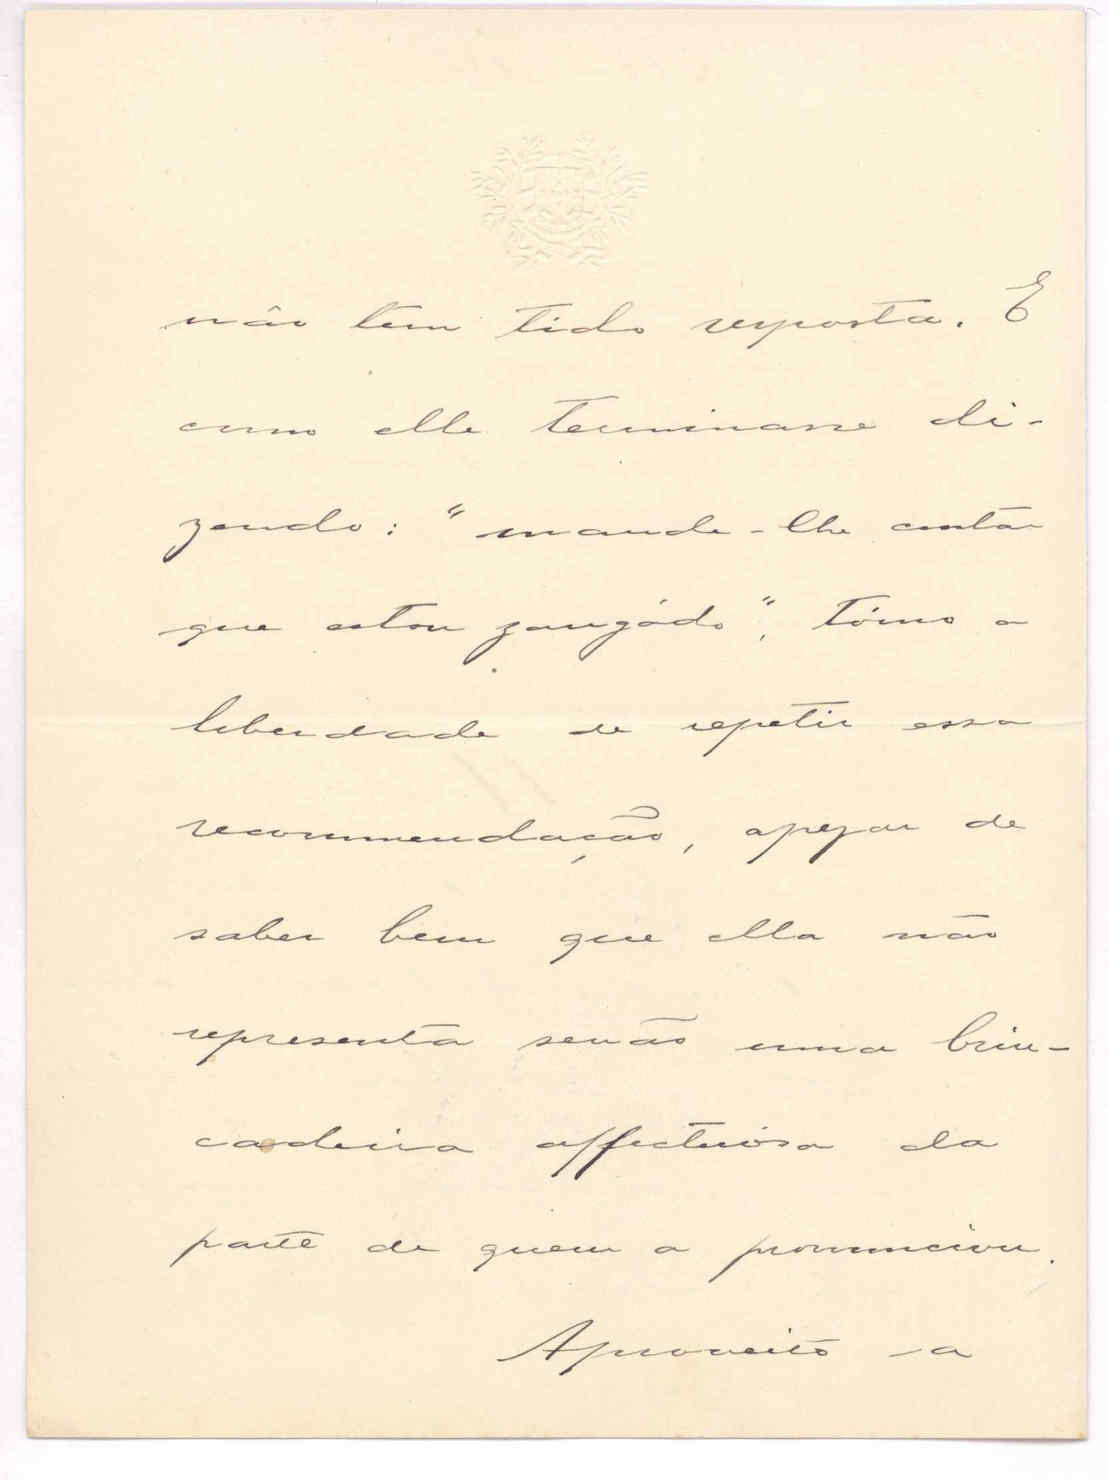 não tem tido resposta. E
como elle terminasse di-
zendo: "mande-lhe contar
que estou zangádo", tómo a
liberdade de repetir essa
recommendação, apezar de
saber bem que ella não
representa senão uma brin-
cadeira affectuósa da
parte de quem a pronunciou.
Aproveito a